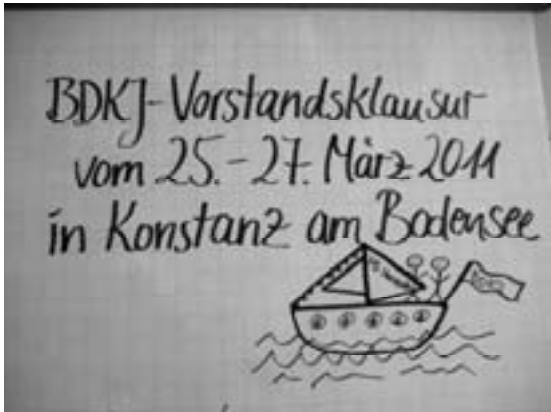 BDKJ-Vorstandsklausur
vom 25.-27. März 2011
in Konstanz am Bodensee